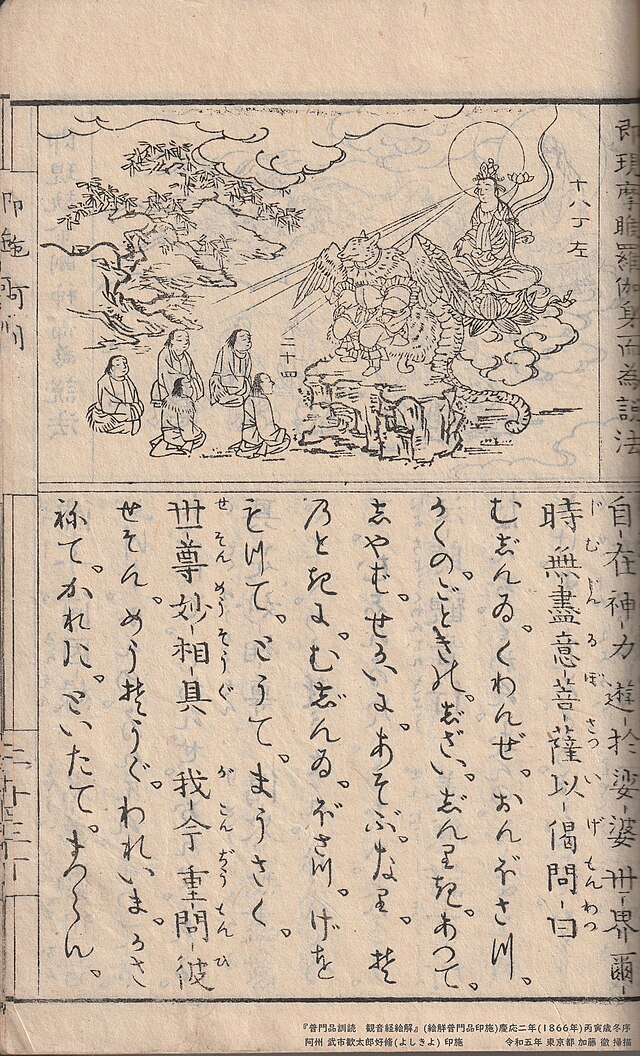 即現摩睺羅伽身而為説法
十八丁左
二十四
自在神力遊於娑婆世界爾
じむじんにぼさついげもんわつ
時無盡意菩薩以偈問曰
むじんゐ。くわんぜ。おんぼさつ。
かくのごときの。じざい。じんりき。あつて。
しやば。せかいに。あそぶ。なり。そ
のときに。むじんゐ。ぼさつ。げを
もつて。とうて。まうさく。
せそんめうそうぐ　がこんぢうもんひ
世尊妙相具　我今重問彼
せそん。めうそうぐ。われいま。かさ
ねて。かれに。といたて。まつらん。
二十三丁
『普門品訓読　観音経絵解』(絵解普門品印施)慶応二年(1866年)丙寅歳冬序
阿州 武市歓太郎好修(よしきよ) 印施　令和五年 東京都 加藤 徹 掃描